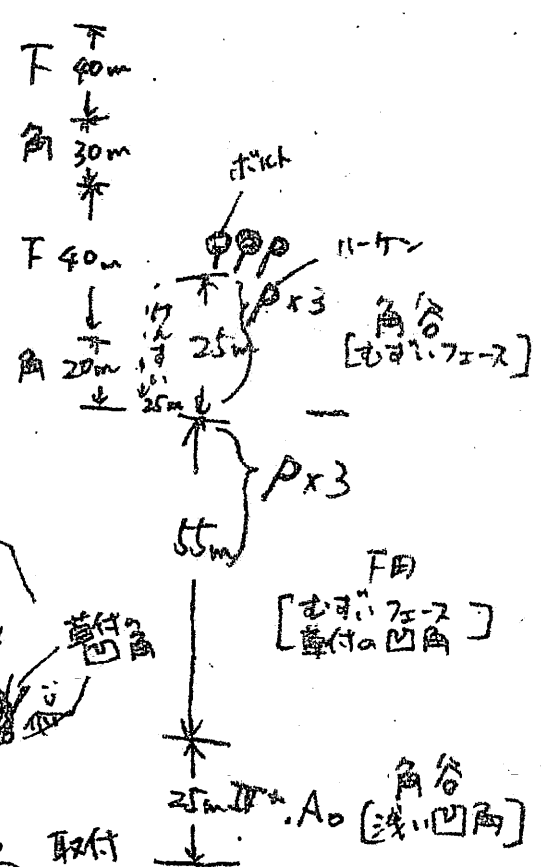 下 40m
角 30m
下 40m
角 20m
ボルト
ハーケン
けんすい
25m
25m
×3
角谷
[むずいフェース]
×3
55m
下田
[むずいフェース
草付の凹角]
草付の
凹角
25m
A0
角谷
[浅い凹角]
取付